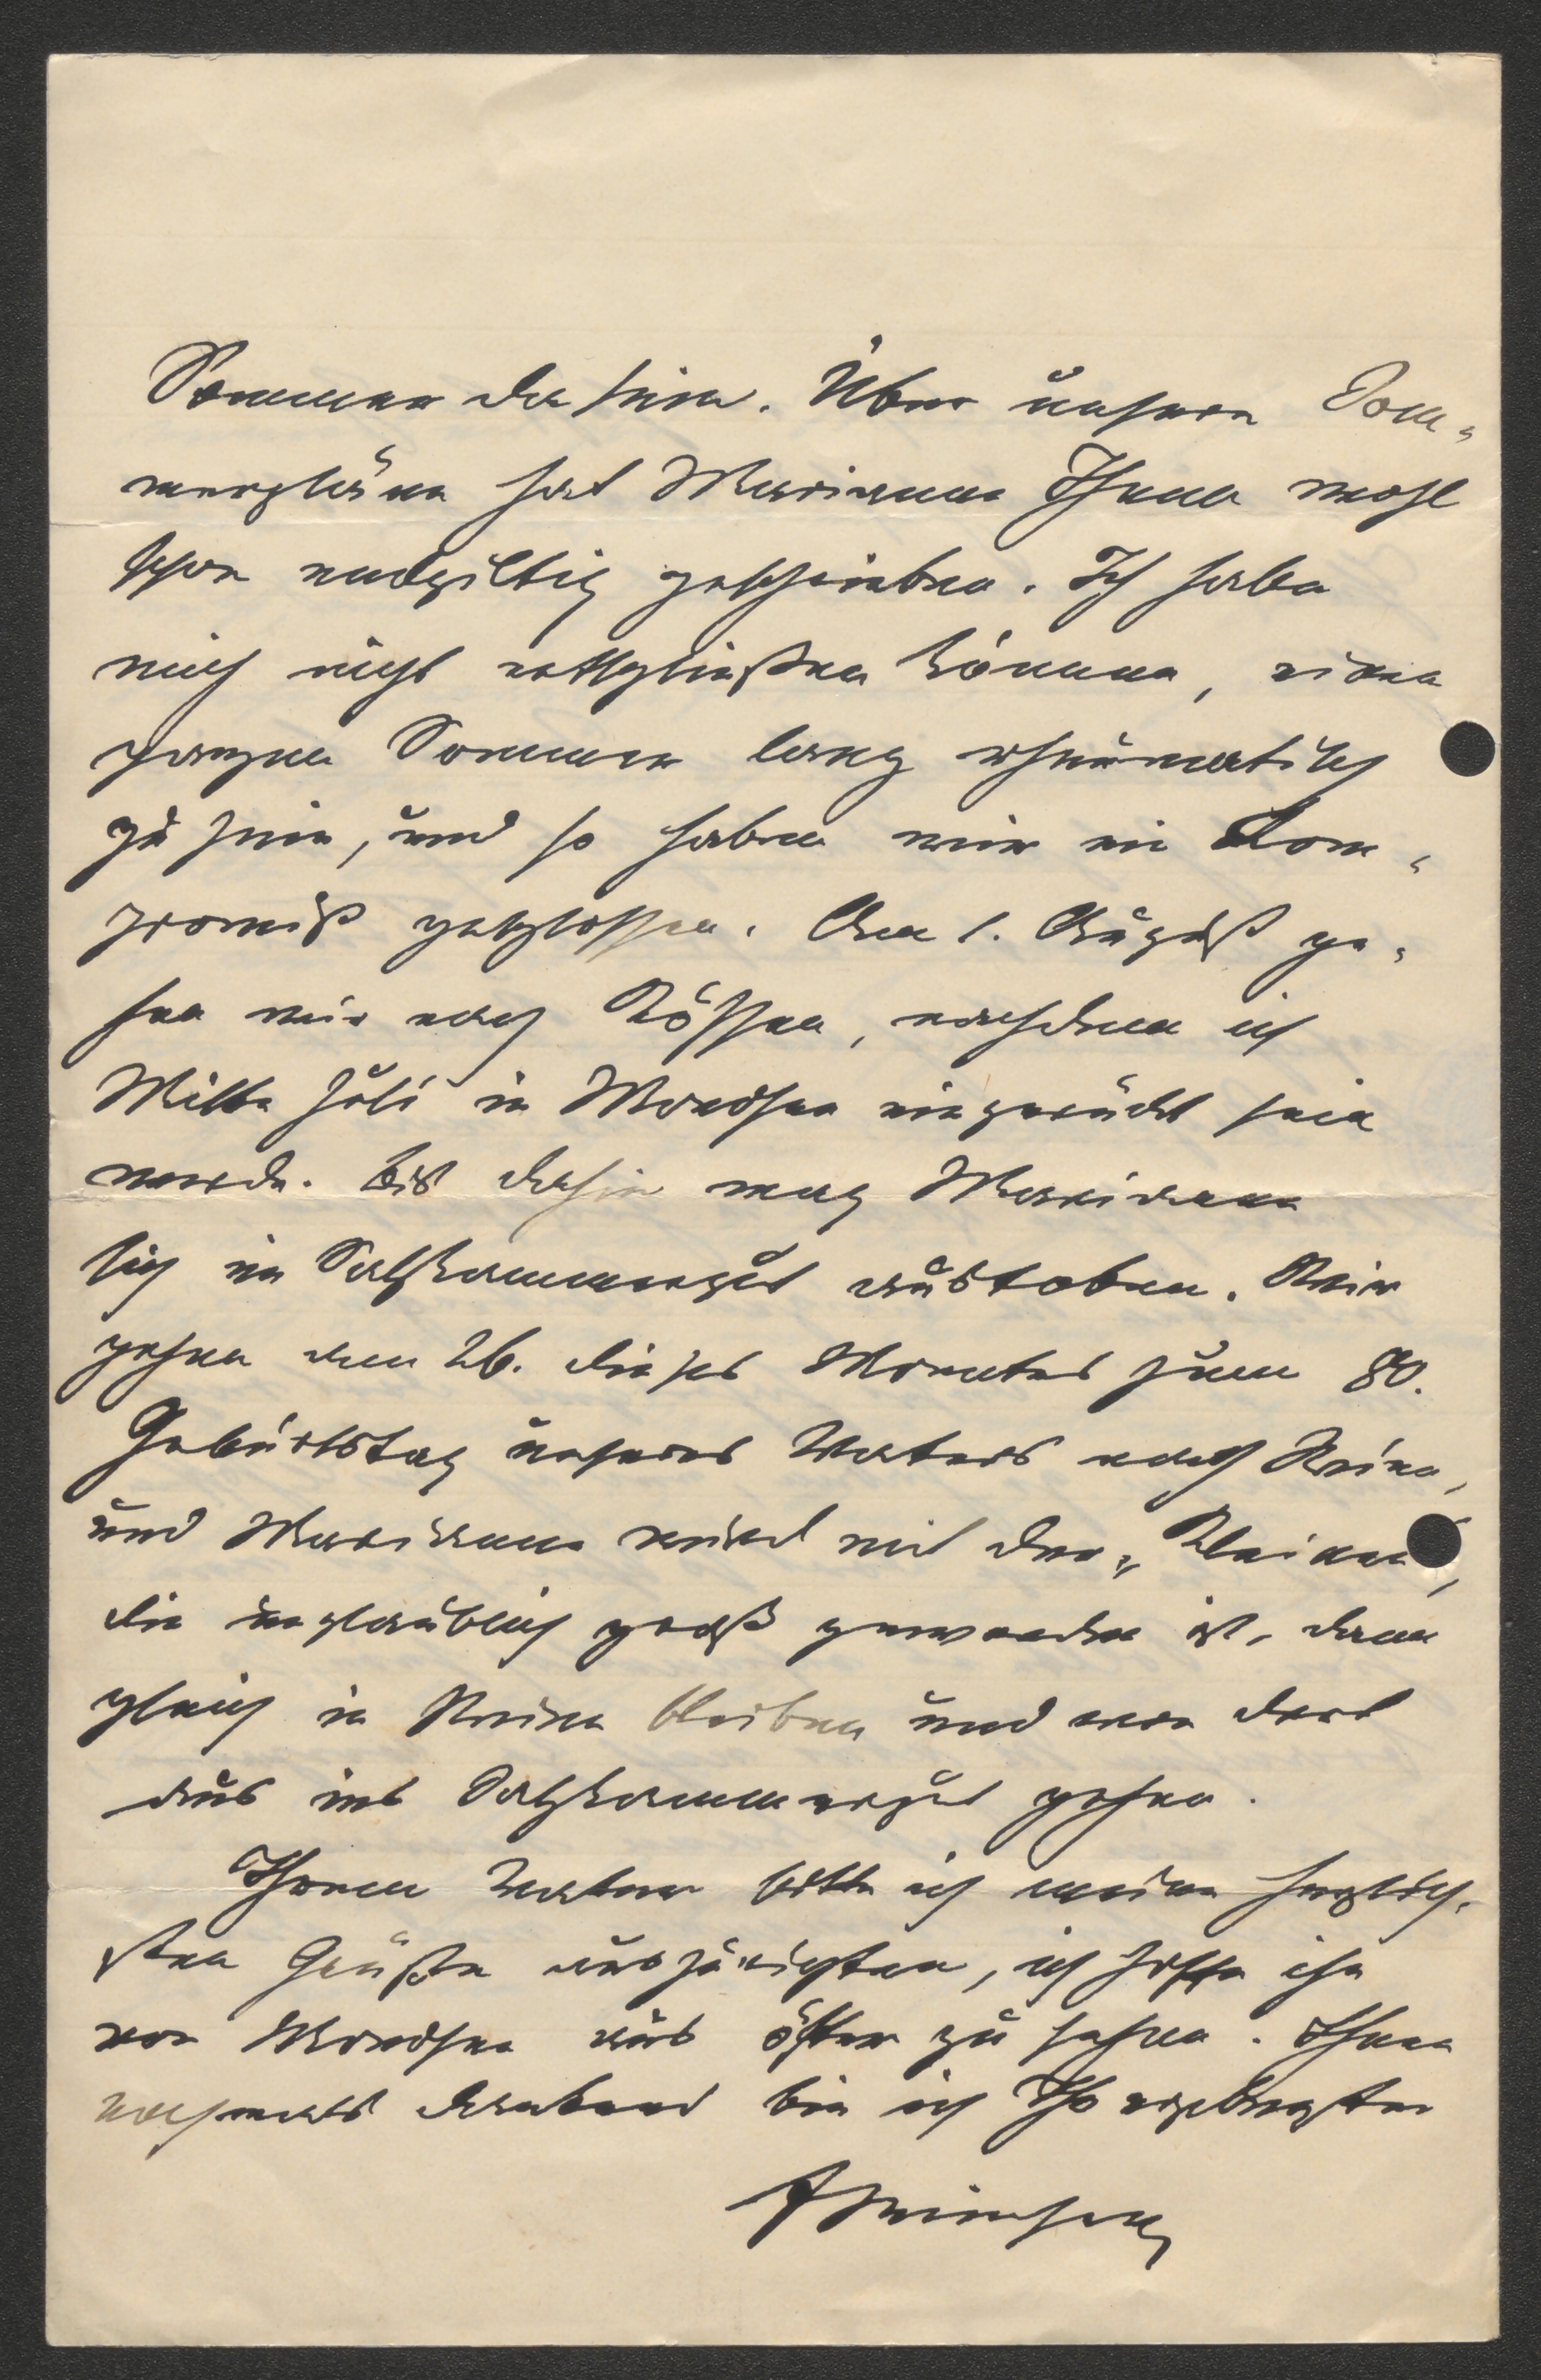 Sommer da sein. Über unsere Som-
merpläne hat Marianne Ihnen wohl
schon endgiltig geschrieben. Ich habe
mich nicht entschließen können, einen
ganzen Sommer lang rheumatisch
zu sein, und so haben wir ein Kom-
promiß geschlossen. Am 1. August ge-
hen wir nach Kössen, nachdem ich
Mitte Juli in Mondsee eingerückt sein
werde. Bis dahin mag Marianne
sich im Salzkammergut austoben. Wir
gehen am 26. dieses Monates zum 80.
Geburtstag unseres Vaters nach Wien,
und Marianne wird mit der „Kleinen“,
die unglaublich groß geworden ist, dann
gleich in Wien bleiben und von dort
aus ins Salzkammergut gehen.
Ihrem Vater bitte ich meine herzlich-
sten Grüße auszurichten, ich hoffe ihn
von Mondsee aus öfter zu sehen. Ihnen
nochmals dankend bin ich Ihr ergebenster